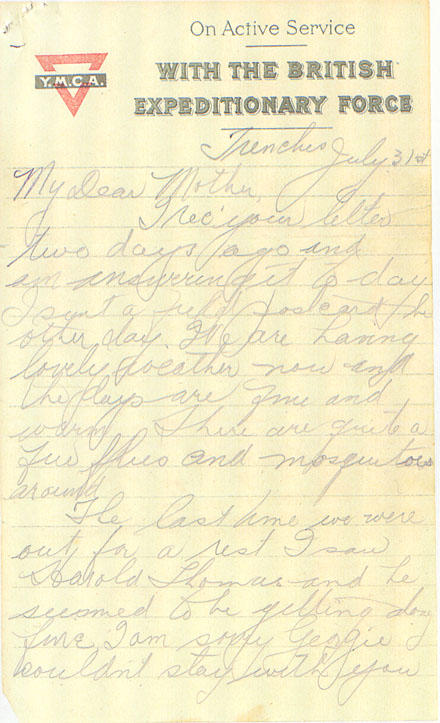 On Active Service
Y.M.C.A.
WITH THE BRITISH
EXPEDITIONARY FORCE
Trenches July 31st
My Dear Mother,
I rec' your letter
two days ago and
am answering it to day
I sent a field postcard the
other day. We are having
lovely weather now and
the days are fine and
warm. There are quite a
few flies and mosquitoes
around
The last time we were
out for a rest I saw
Harold Thomas and he
seemed to be getting along
fine. I am sorry Georgie
couldn't stay with you